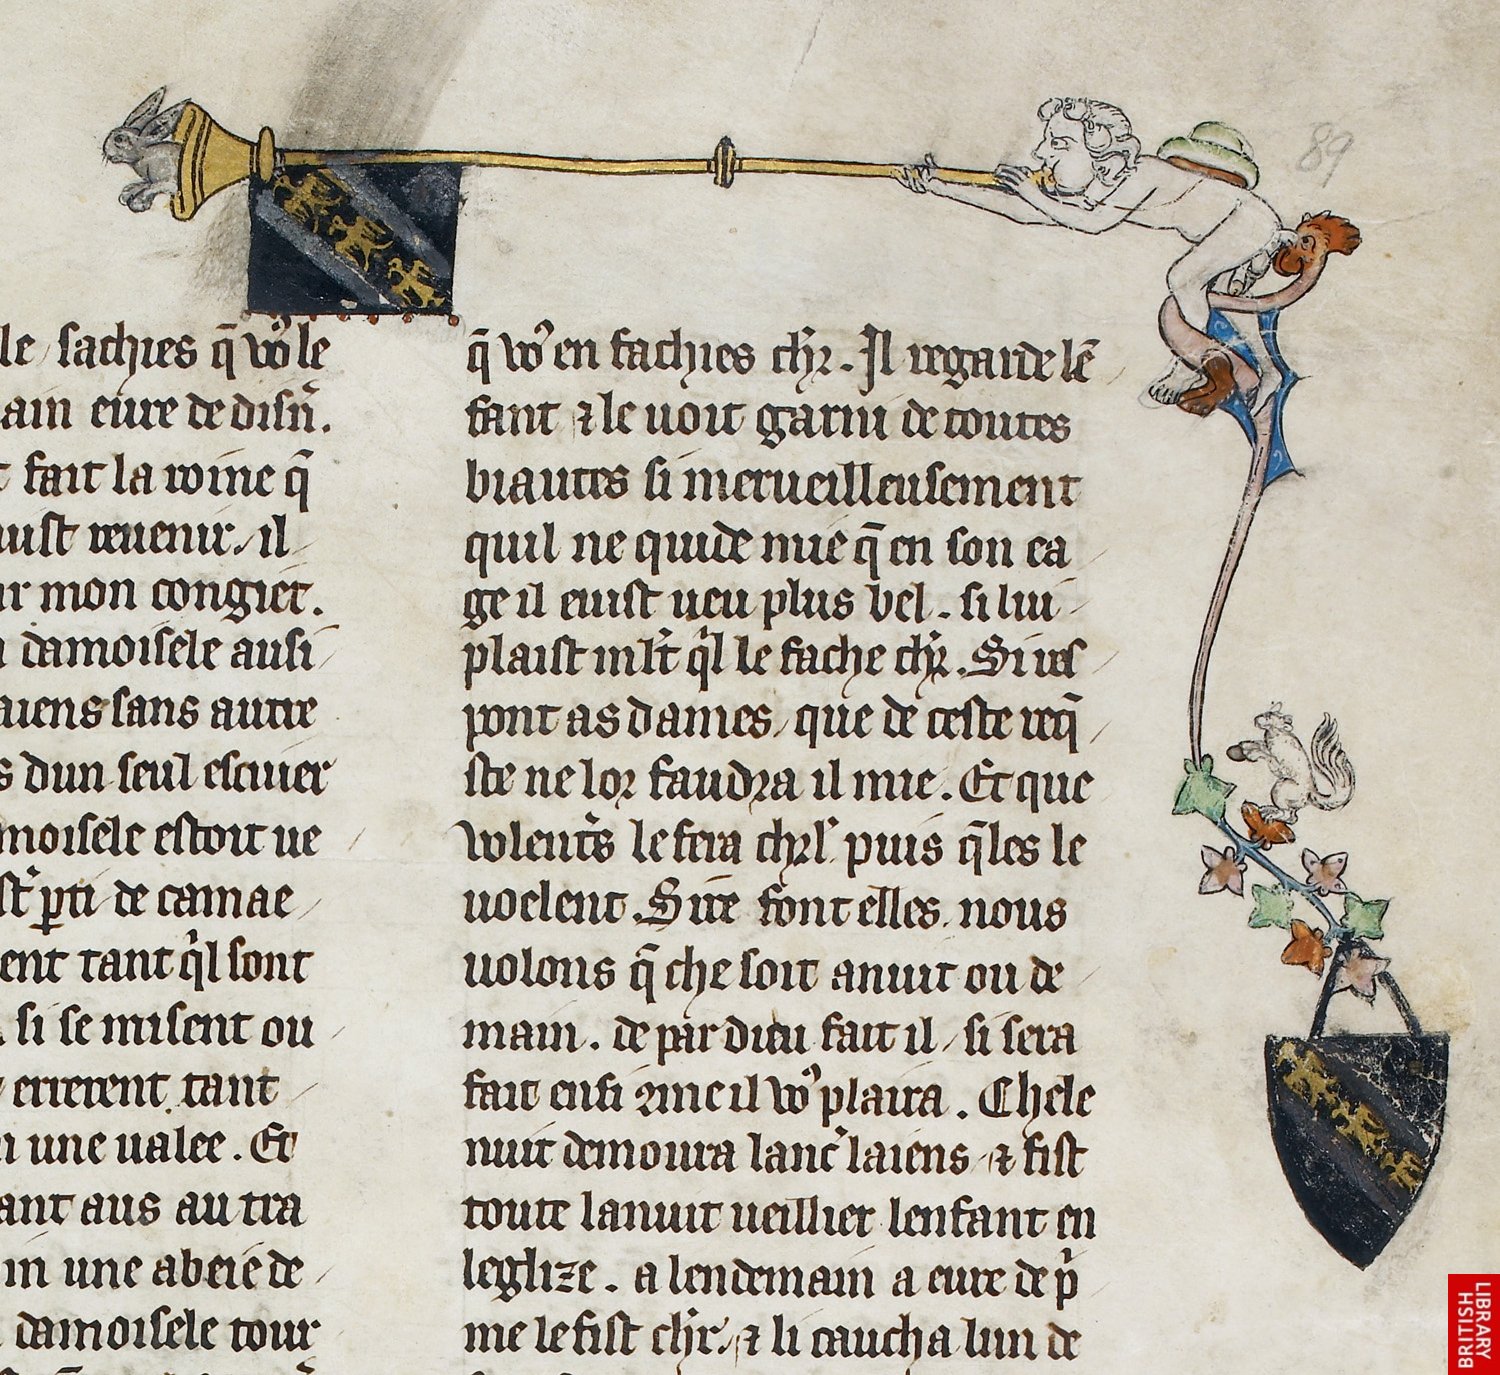 89
le / sachies q̄ vo⁹ le
ain eure de disn̄.
fait la roine q̄
uist reuenir / il
ur mon congiet.
damoisele ausi
laiens sans autre
s dun seul escuier
moisele estoit ue
de camae
ent tant q'l sont
si se misent ou
errerent tant
i une ualee. Et
ant aus au tra
in une abeie de
damoisele tour
q̄ vo⁹ en fachies chr̄. Il regarde lē
fant ⁊ le uoit garni de toutes
biautes si merueilleusement
quil ne quide mie q̄ en son ea
ge il euist ueu plus bel. si lui
plaist mlt̄ q'l le fache chr̄. Si res
pont as dames / que de ceste req̄
ste ne lor faudra il mie. Et que
volent's le fera chr̄l' puis q̄les le
uoelent. Sire font elles. nous
uolons q̄ che soit anuit ou de
main. de par dieu fait il / si sera
fait ensi 9me il vo⁹ plaira. Chele
nuit demoura lanc̄ laiens / ⁊ fist
toute la nuit ueillier lenfant en
leglize. a lendemain a eure de p'
me le fist chr̄ / ⁊ li caucha lun de
BRITISH LIBRARY